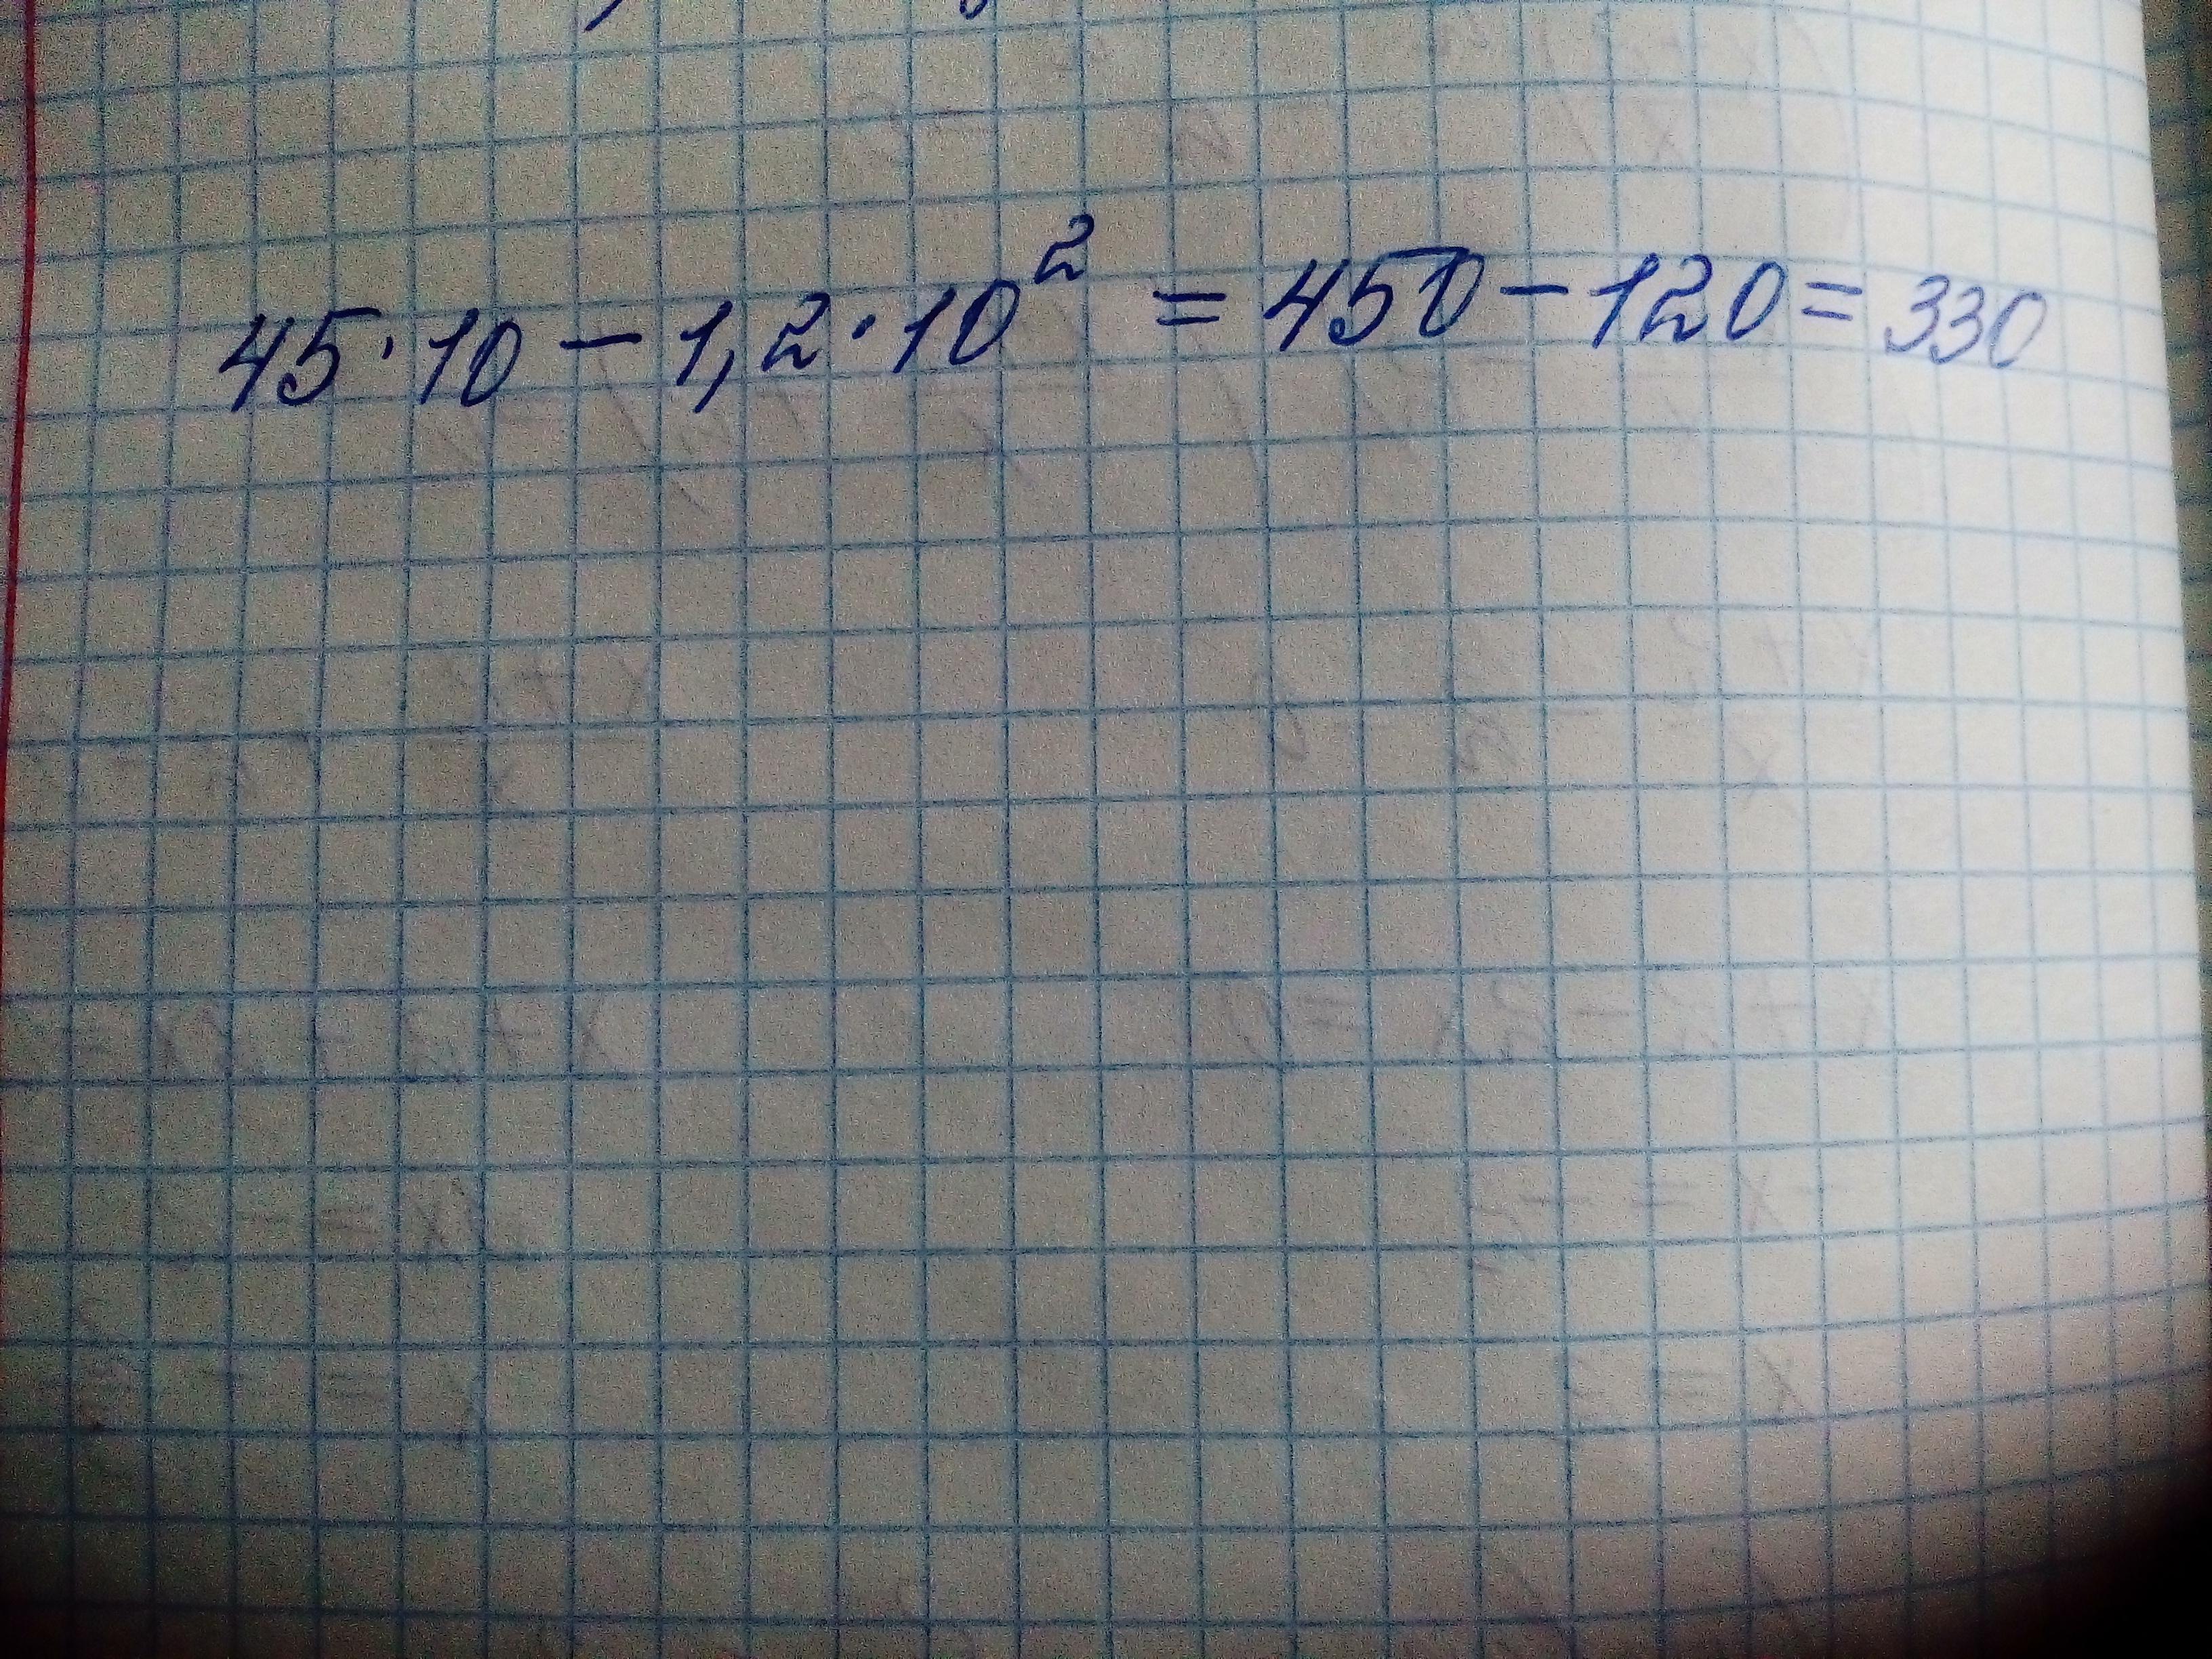 45·10-1,2·10² = 450-120=330